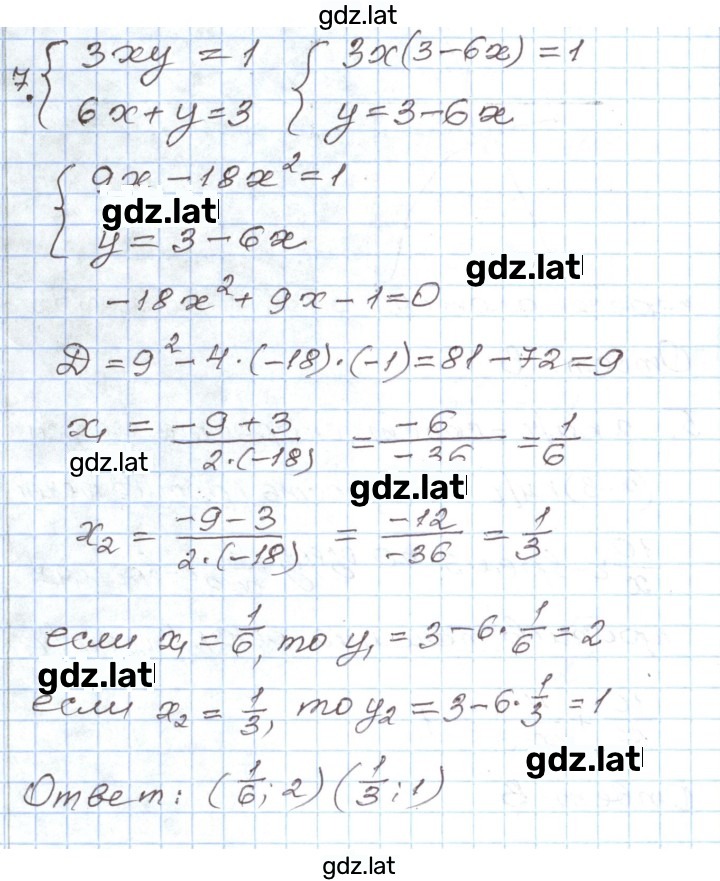 gdz.lat
7. { 3xy = 1 { 3x(3-6x) = 1
6x + y = 3 y = 3-6x
{ 9x - 18x² = 1
gdz.lat
y = 3 - 6x
gdz.lat
-18x² + 9x - 1 = 0
D = 9² - 4·(-18)·(-1) = 81 - 72 = 9
x₁ = (-9+3)/(2·(-18)) = (-6)/(-36) = 1/6
gdz.lat
gdz.lat
x₂ = (-9-3)/(2·(-18)) = (-12)/(-36) = 1/3
если x₁ = 1/6, то y₁ = 3-6·1/6 = 2
gdz.lat
если x₂ = 1/3, то y₂ = 3-6·1/3 = 1
gdz.lat
Ответ: (1/6; 2) (1/3; 1)
gdz.lat